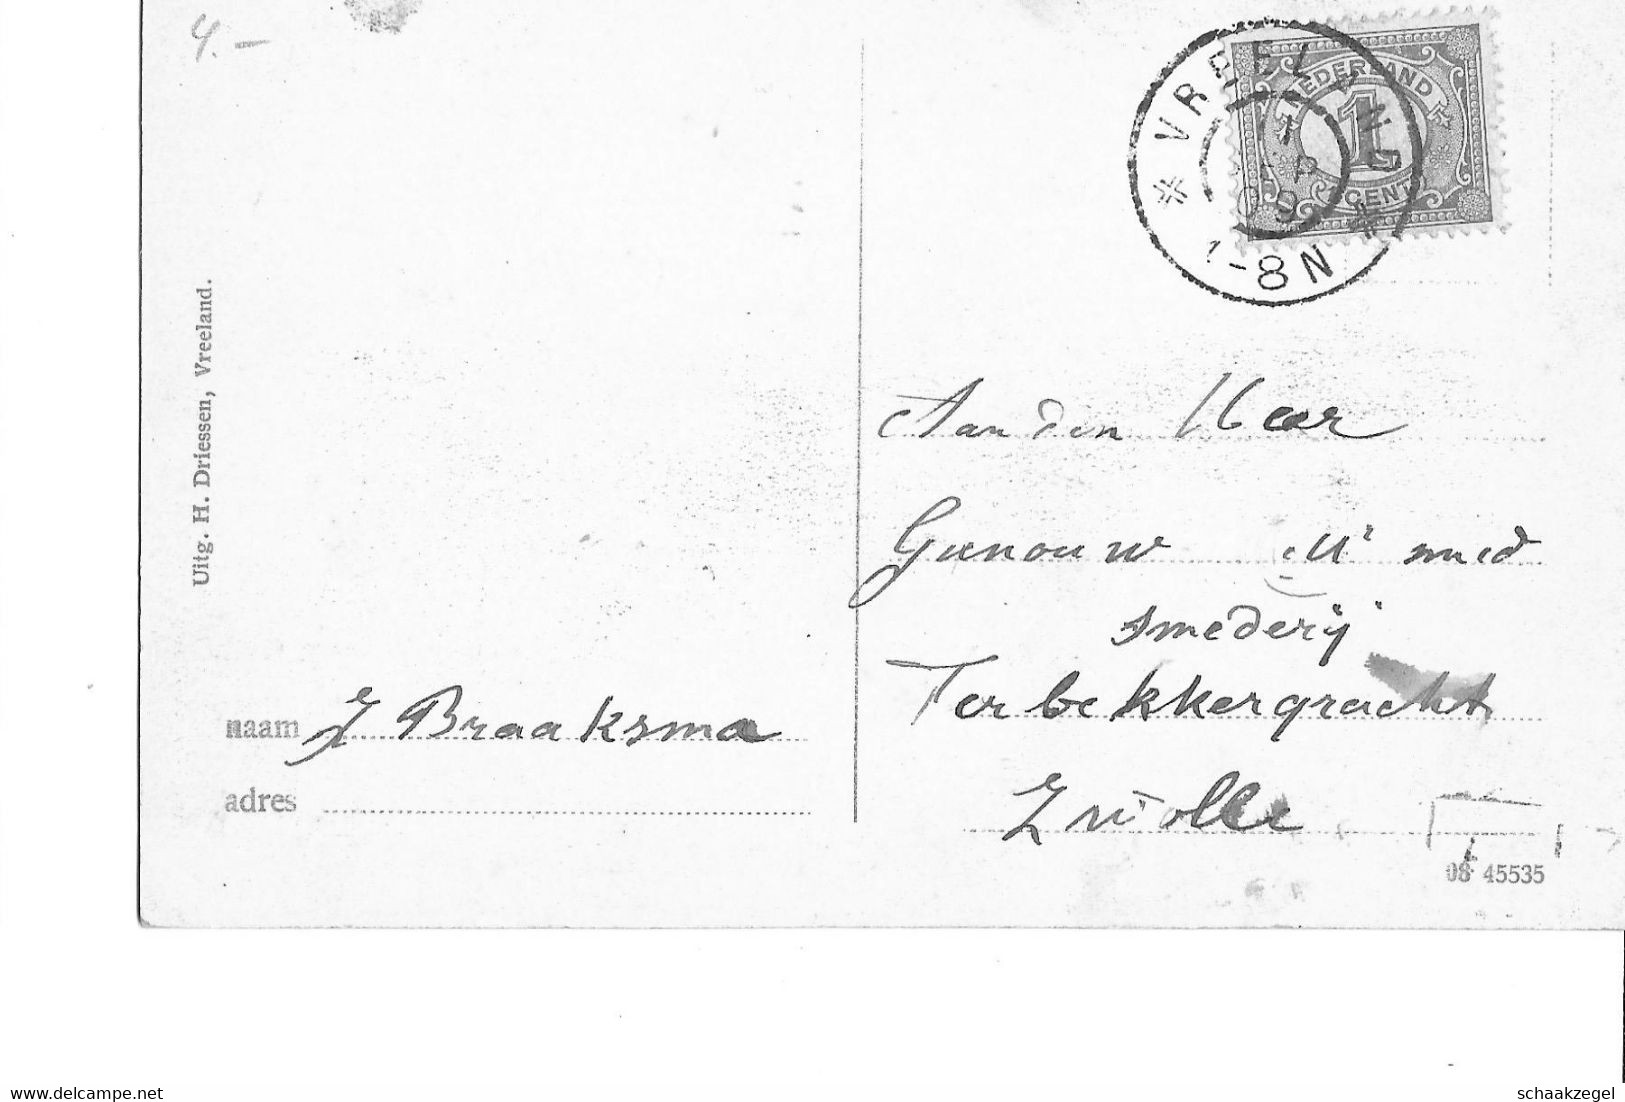 4.-
VREELAND
NEDERLAND
1
CENT
1
AP
09
1-8N
Uitg. H. Driessen, Vreeland.
Aan den Heer
smid
smederij
Terbekkergracht
Zwolle
naam J Braaksma
adres
08 45535
www.delcampe.net
schaakzegel